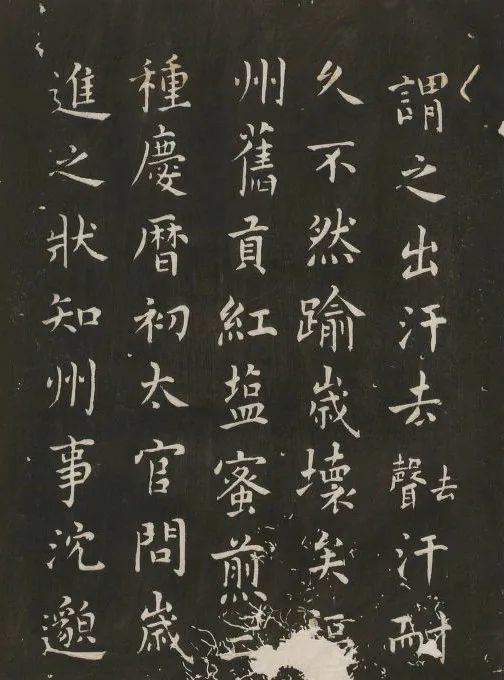 謂之出汗去去聲汗耐
久不然踰歲壞矣福
州舊貢紅塩蜜煎二
種慶暦初太官問歲
進之狀知州事沈邈